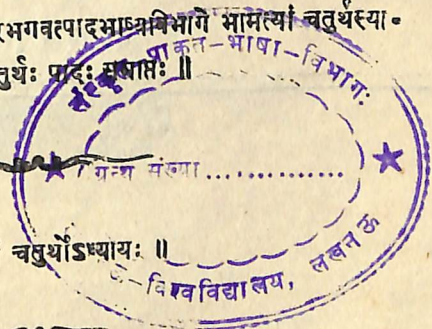 रभगवत्पादभाष्यविभागे भामत्यां चतुर्थस्या-
तुर्थः पादः समाप्तः ॥
संस्कृत प्राकृत-भाषा-विभागः
ग्रन्थ संख्या ..............
चतुर्थोऽध्यायः ॥
-विश्वविद्यालय, लखनऊ